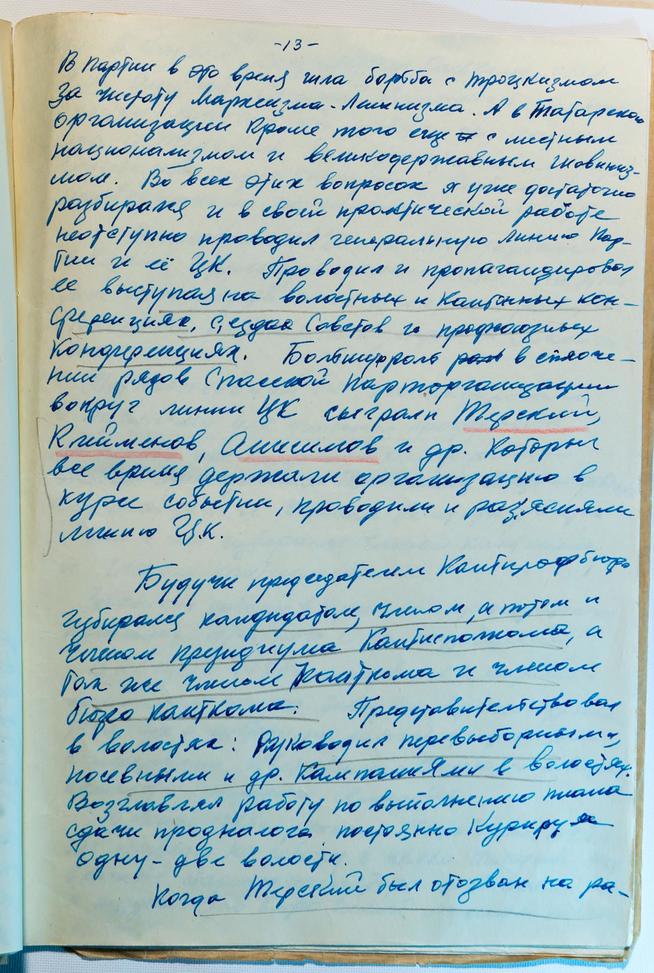 -13-
В партии в это время шла борьба с троцкизмом
за чистоту Марксизма-Ленинизма. А в Татарской
организации кроме того еще с местным
национализмом и великодержавным шовиниз-
мом. Во всех этих вопросах я уже достаточно
разбирался и в своей практической работе
неотступно проводил генеральную линию Пар-
тии и её ЦК. Проводил и пропагандировал
ее выступая на волостных и Кантонных кон-
ференциях, съездах Советов и профсоюзных
Конференциях. Большую роль в сплоче-
нии рядов Спасской парторганизации
вокруг линии ЦК сыграли Терский,
Клийменов, Анисимов и др. которые
все время держали организацию в
курсе событий, проводили и разъясняли
линию ЦК.
Будучи председателем Кантпрофбюро
избирался кандидатом, членом, а потом и
членом президиума Кантисполкома, а
так же членом Канткома и членом
бюро канткома. Представительствовал
в волостях: Руководил перевыборными,
посевными и др. Кампаниями в волостях.
Возглавлял работу по выполнению плана
сдачи продналога постоянно Курируя
одну-две волости.
Когда Терский был отозван на ра-